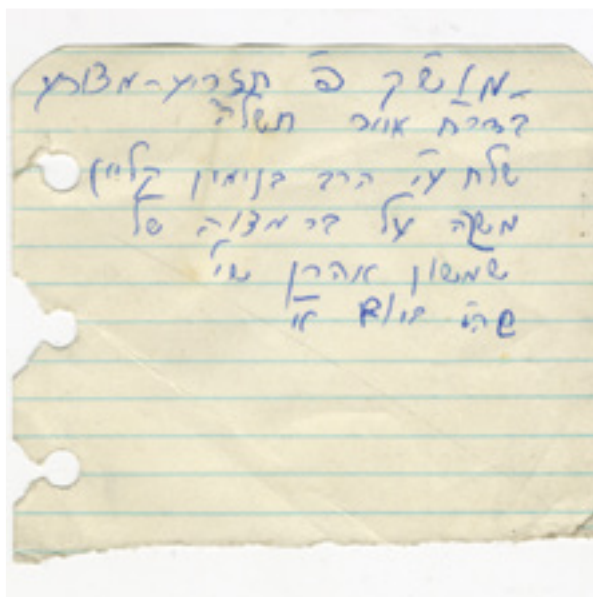 מוש"ק פ' תזריע-מצורע
ב'דר"ח אייר תשל"ה
שלח ע"י הרב בנימין קליין
משקה על בר מצוה של
שמשון אהרן שי'
שהי' ביום א'